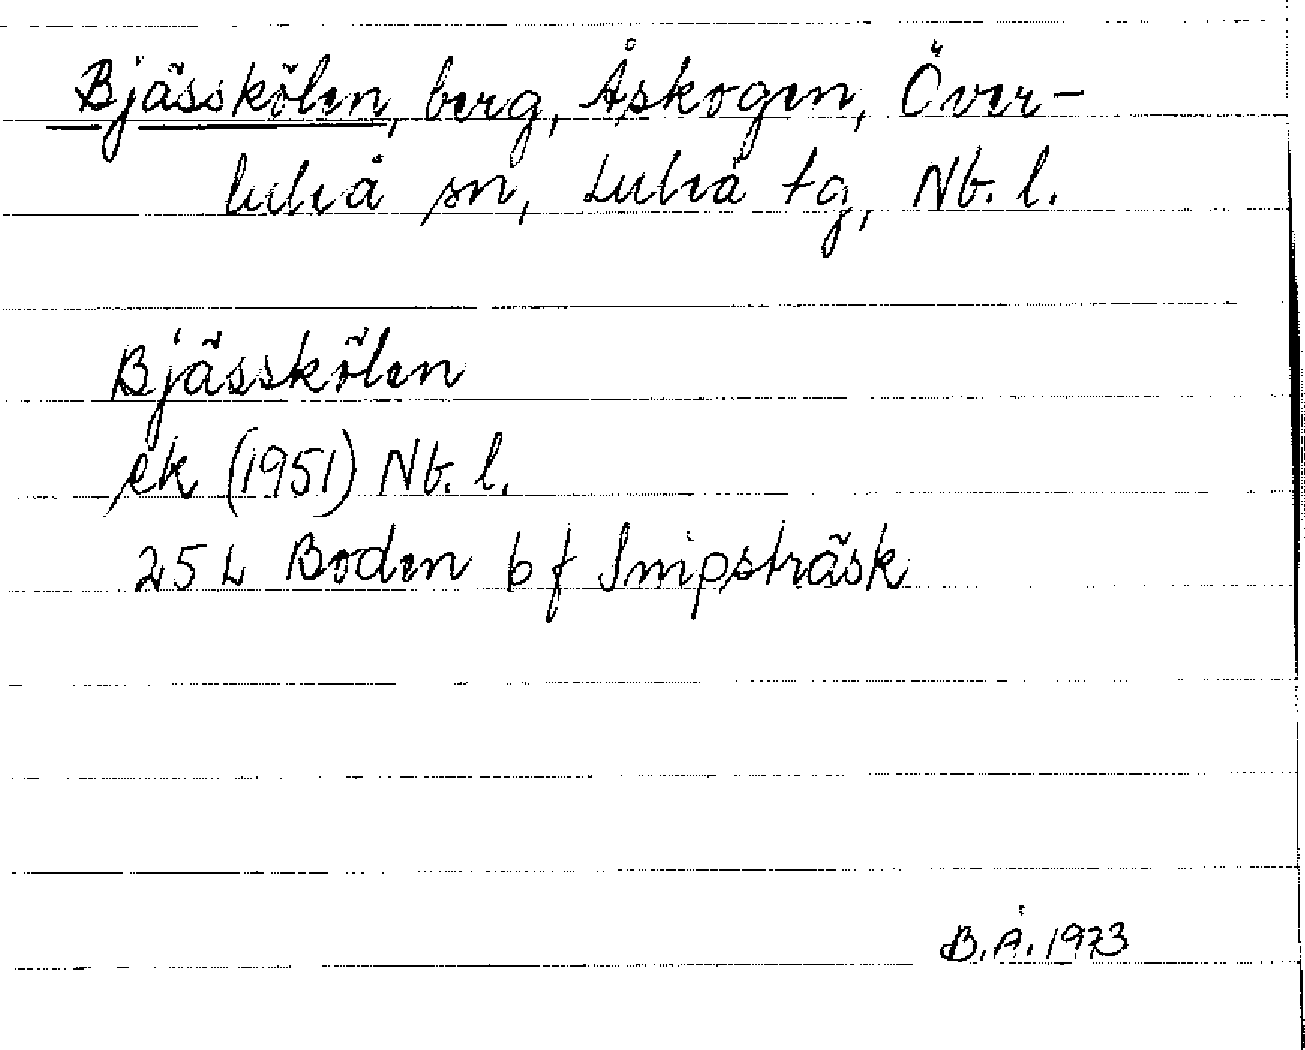 Bjässkölen, berg, Åskogen, Över-
luleå sn, Luleå tg, Nb. l.
Bjässkölen
ek (1951) Nb. l.
25 L Boden b f Snipsträsk
B.Å. 1973